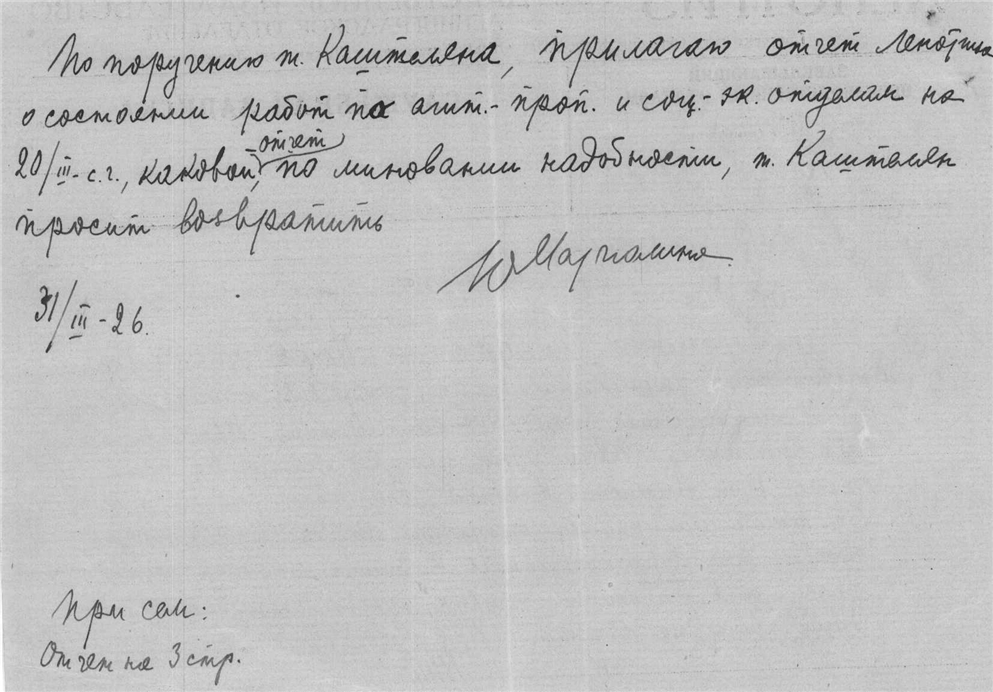 По поручению т. Каштеляна, прилагаю отчет Ленотгиза
о состоянии работ по агит.- проп. и соц.- эк. отделам на
20/III - с.г., каковой отчет, по миновании надобности, т. Каштелян
просит возвратить
Ю Марголина
31/III - 26.
При сем:
Отчет на 3 стр.